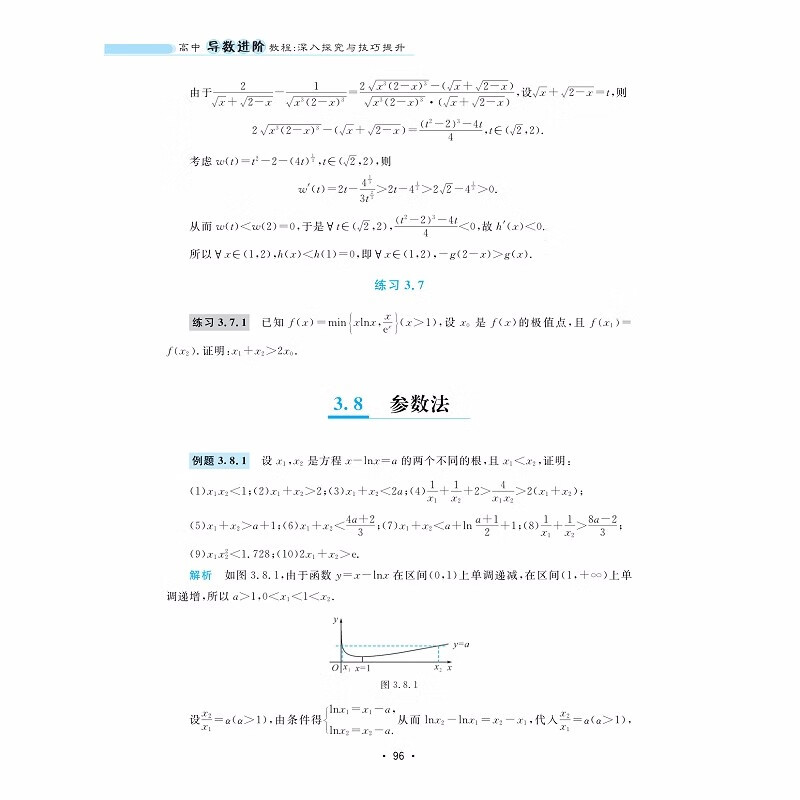 高中 导数进阶 教程:深入探究与技巧提升
由于2/(√x+√(2−x))−1/√(x³(2−x)³)=(2√(x³(2−x)³)−(√x+√(2−x)))/(√(x³(2−x)³)•(√x+√(2−x))),设√x+√(2−x)=t,则
2√(x³(2−x)³)−(√x+√(2−x))=((t²−2)³−4t)/4,t∈(√2,2).
从而 w(t)<w(2)=0,于是∀t∈(√2,2),((t²−2)³−4t)/4<0,故 h′(x)<0.
所以∀x∈(1,2),h(x)<h(1)=0,即∀x∈(1,2),−g(2−x)>g(x).
练习 3.7
练习 3.7.1 已知 f(x)=min{xlnx,x/eˣ}(x>1),设 x₀ 是 f(x)的极值点,且 f(x₁)=
f(x₂).证明:x₁+x₂>2x₀.
3.8 参数法
例题 3.8.1 设 x₁,x₂ 是方程 x−lnx=a 的两个不同的根,且 x₁<x₂,证明:
(1)x₁x₂<1;(2)x₁+x₂>2;(3)x₁+x₂<2a;(4)1/x₁+1/x₂+2>4/(x₁x₂)>2(x₁+x₂);
(5)x₁+x₂>a+1;(6)x₁+x₂<(4a+2)/3;(7)x₁+x₂<a+ln (a+1)/2+1;(8)1/x₁+1/x₂>(8a−2)/3;
(9)x₁x₂²<1.728;(10)2x₁+x₂>e.
解析 如图 3.8.1,由于函数 y=x−lnx 在区间(0,1)上单调递减,在区间(1,+∞)上单
调递增,所以 a>1,0<x₁<1<x₂.
y
y=a
O x₁ x=1 x₂ x
图 3.8.1
设x₂/x₁=α(α>1),由条件得{lnx₁=x₁−a, lnx₂=x₂−a. 从而 lnx₂−lnx₁=x₂−x₁,代入x₂/x₁=α(α>1),
• 96 •